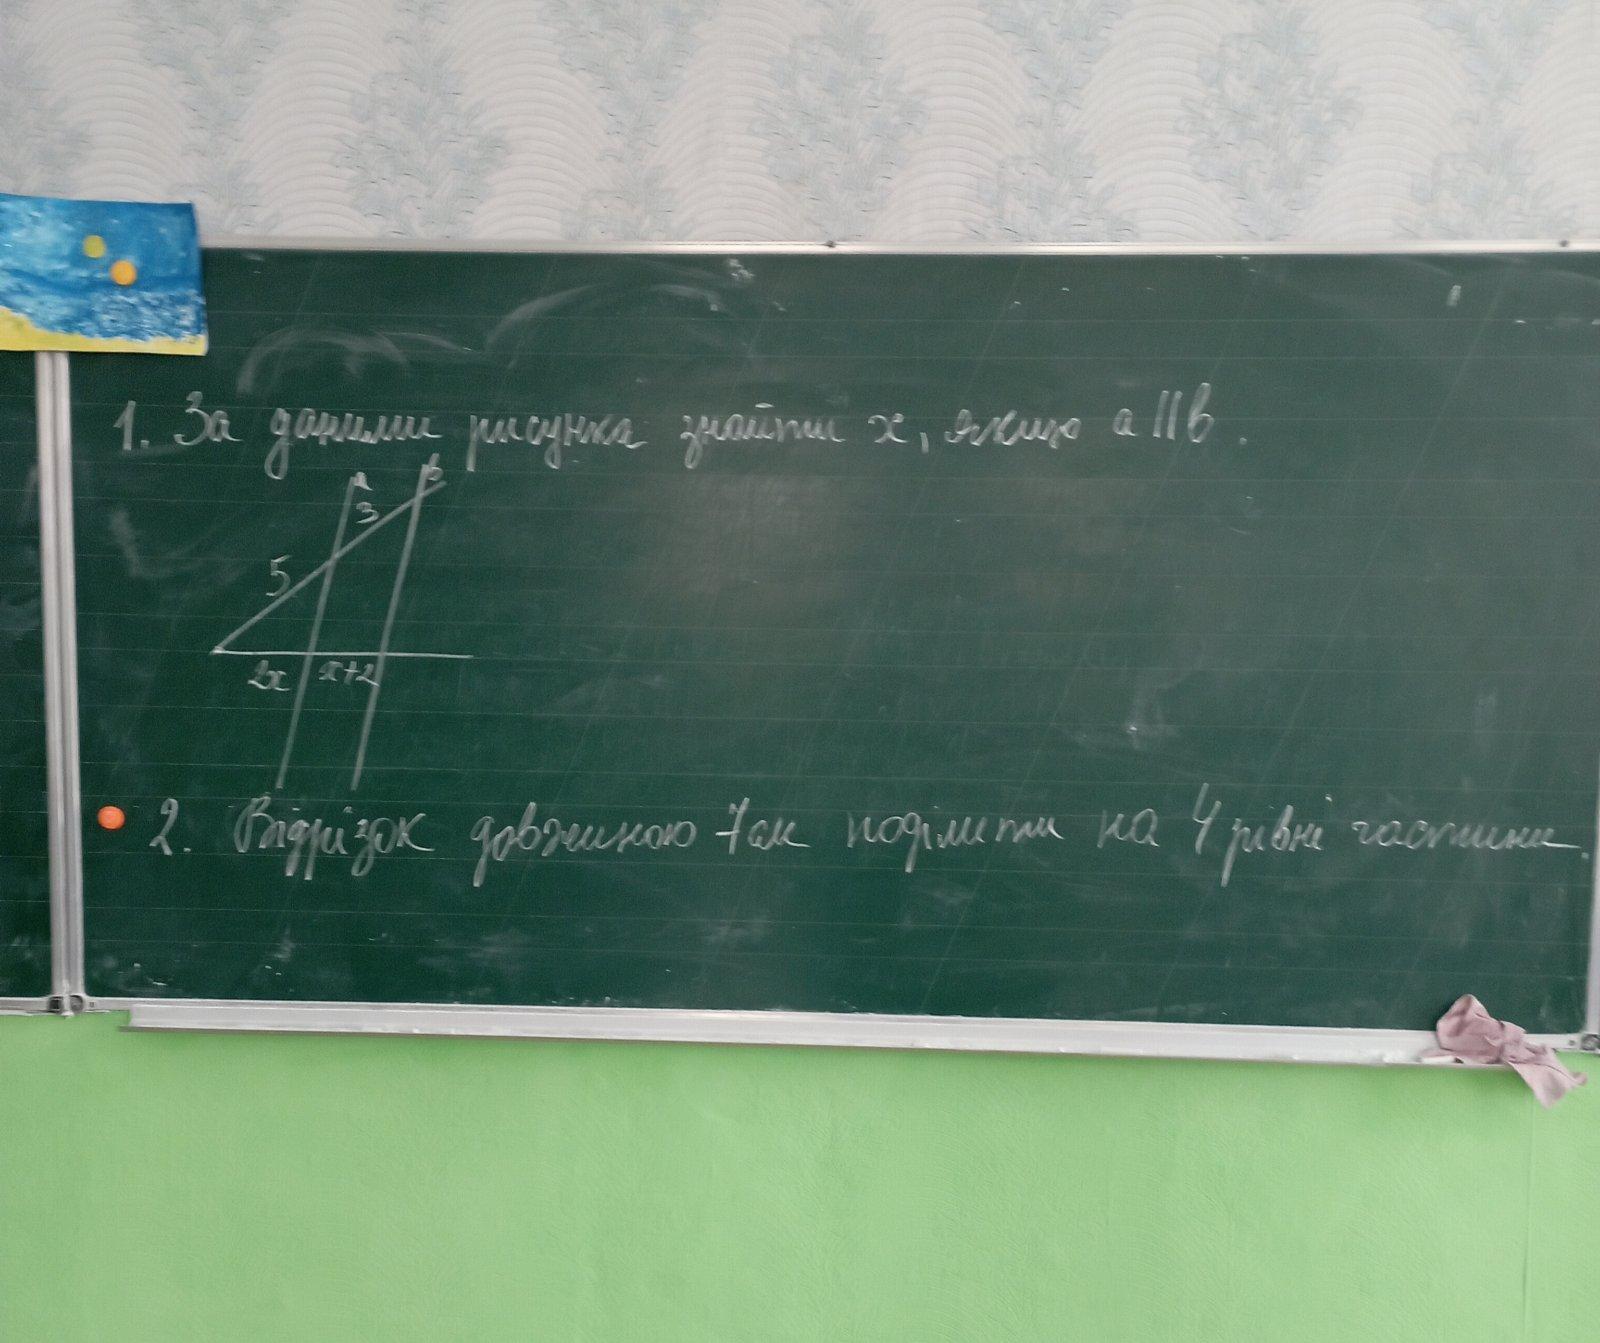 1. За даними рисунка знайти x, якщо a || b.
a b
3
5
2x x+2
2. Відрізок довжиною 7 см поділити на 4 рівні частини.